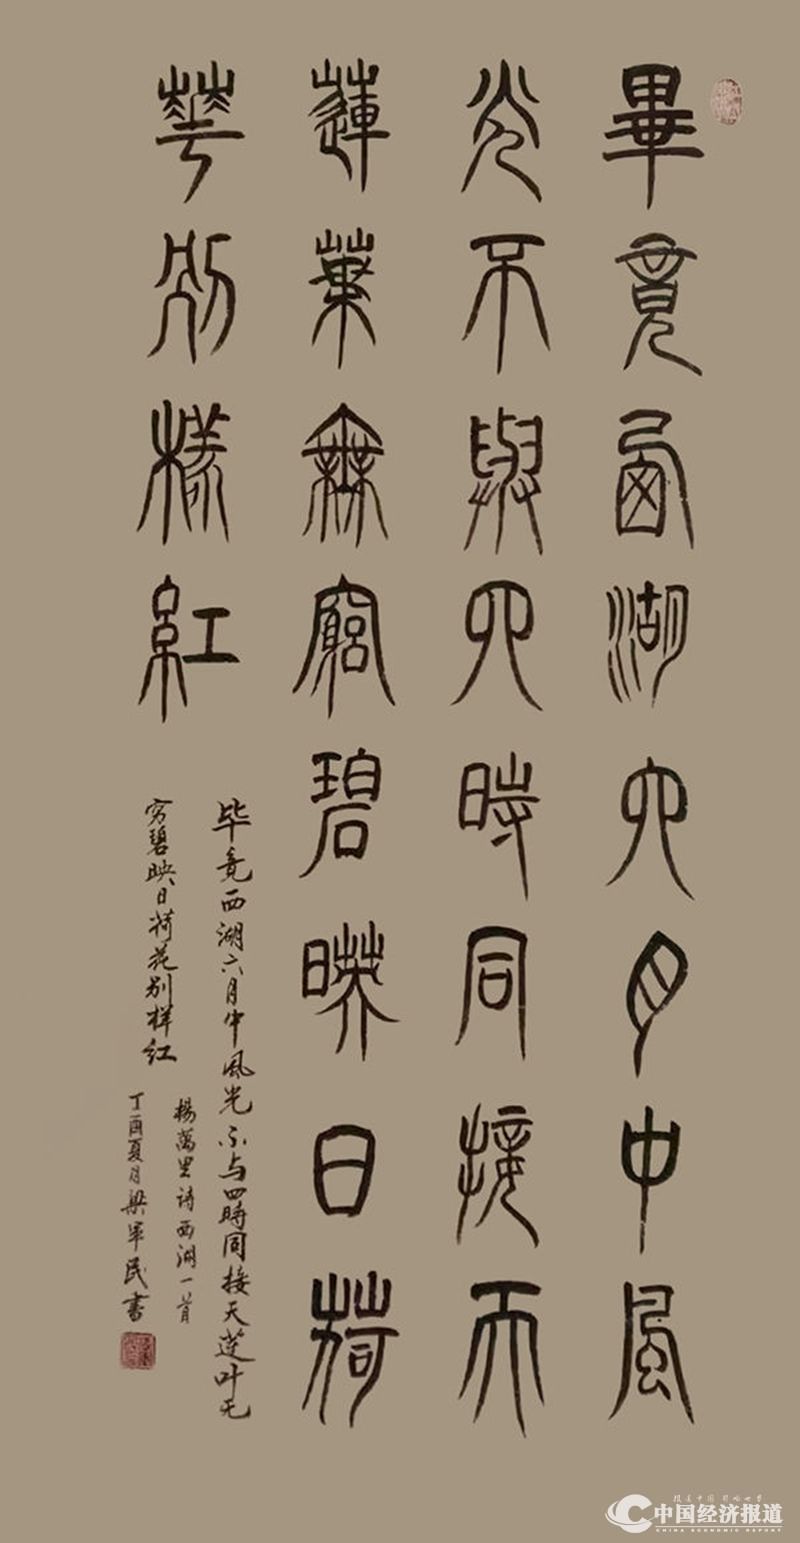 畢竟西湖六月中風
光不與四時同接天
蓮葉無窮碧映日荷
華別樣紅
毕竟西湖六月中風光不与四時同接天莲叶无
穷碧映日荷花别样红
楊萬里诗西湖一首
丁酉夏月梁军民書
中国经济报道
CHINA ECONOMIC REPORT